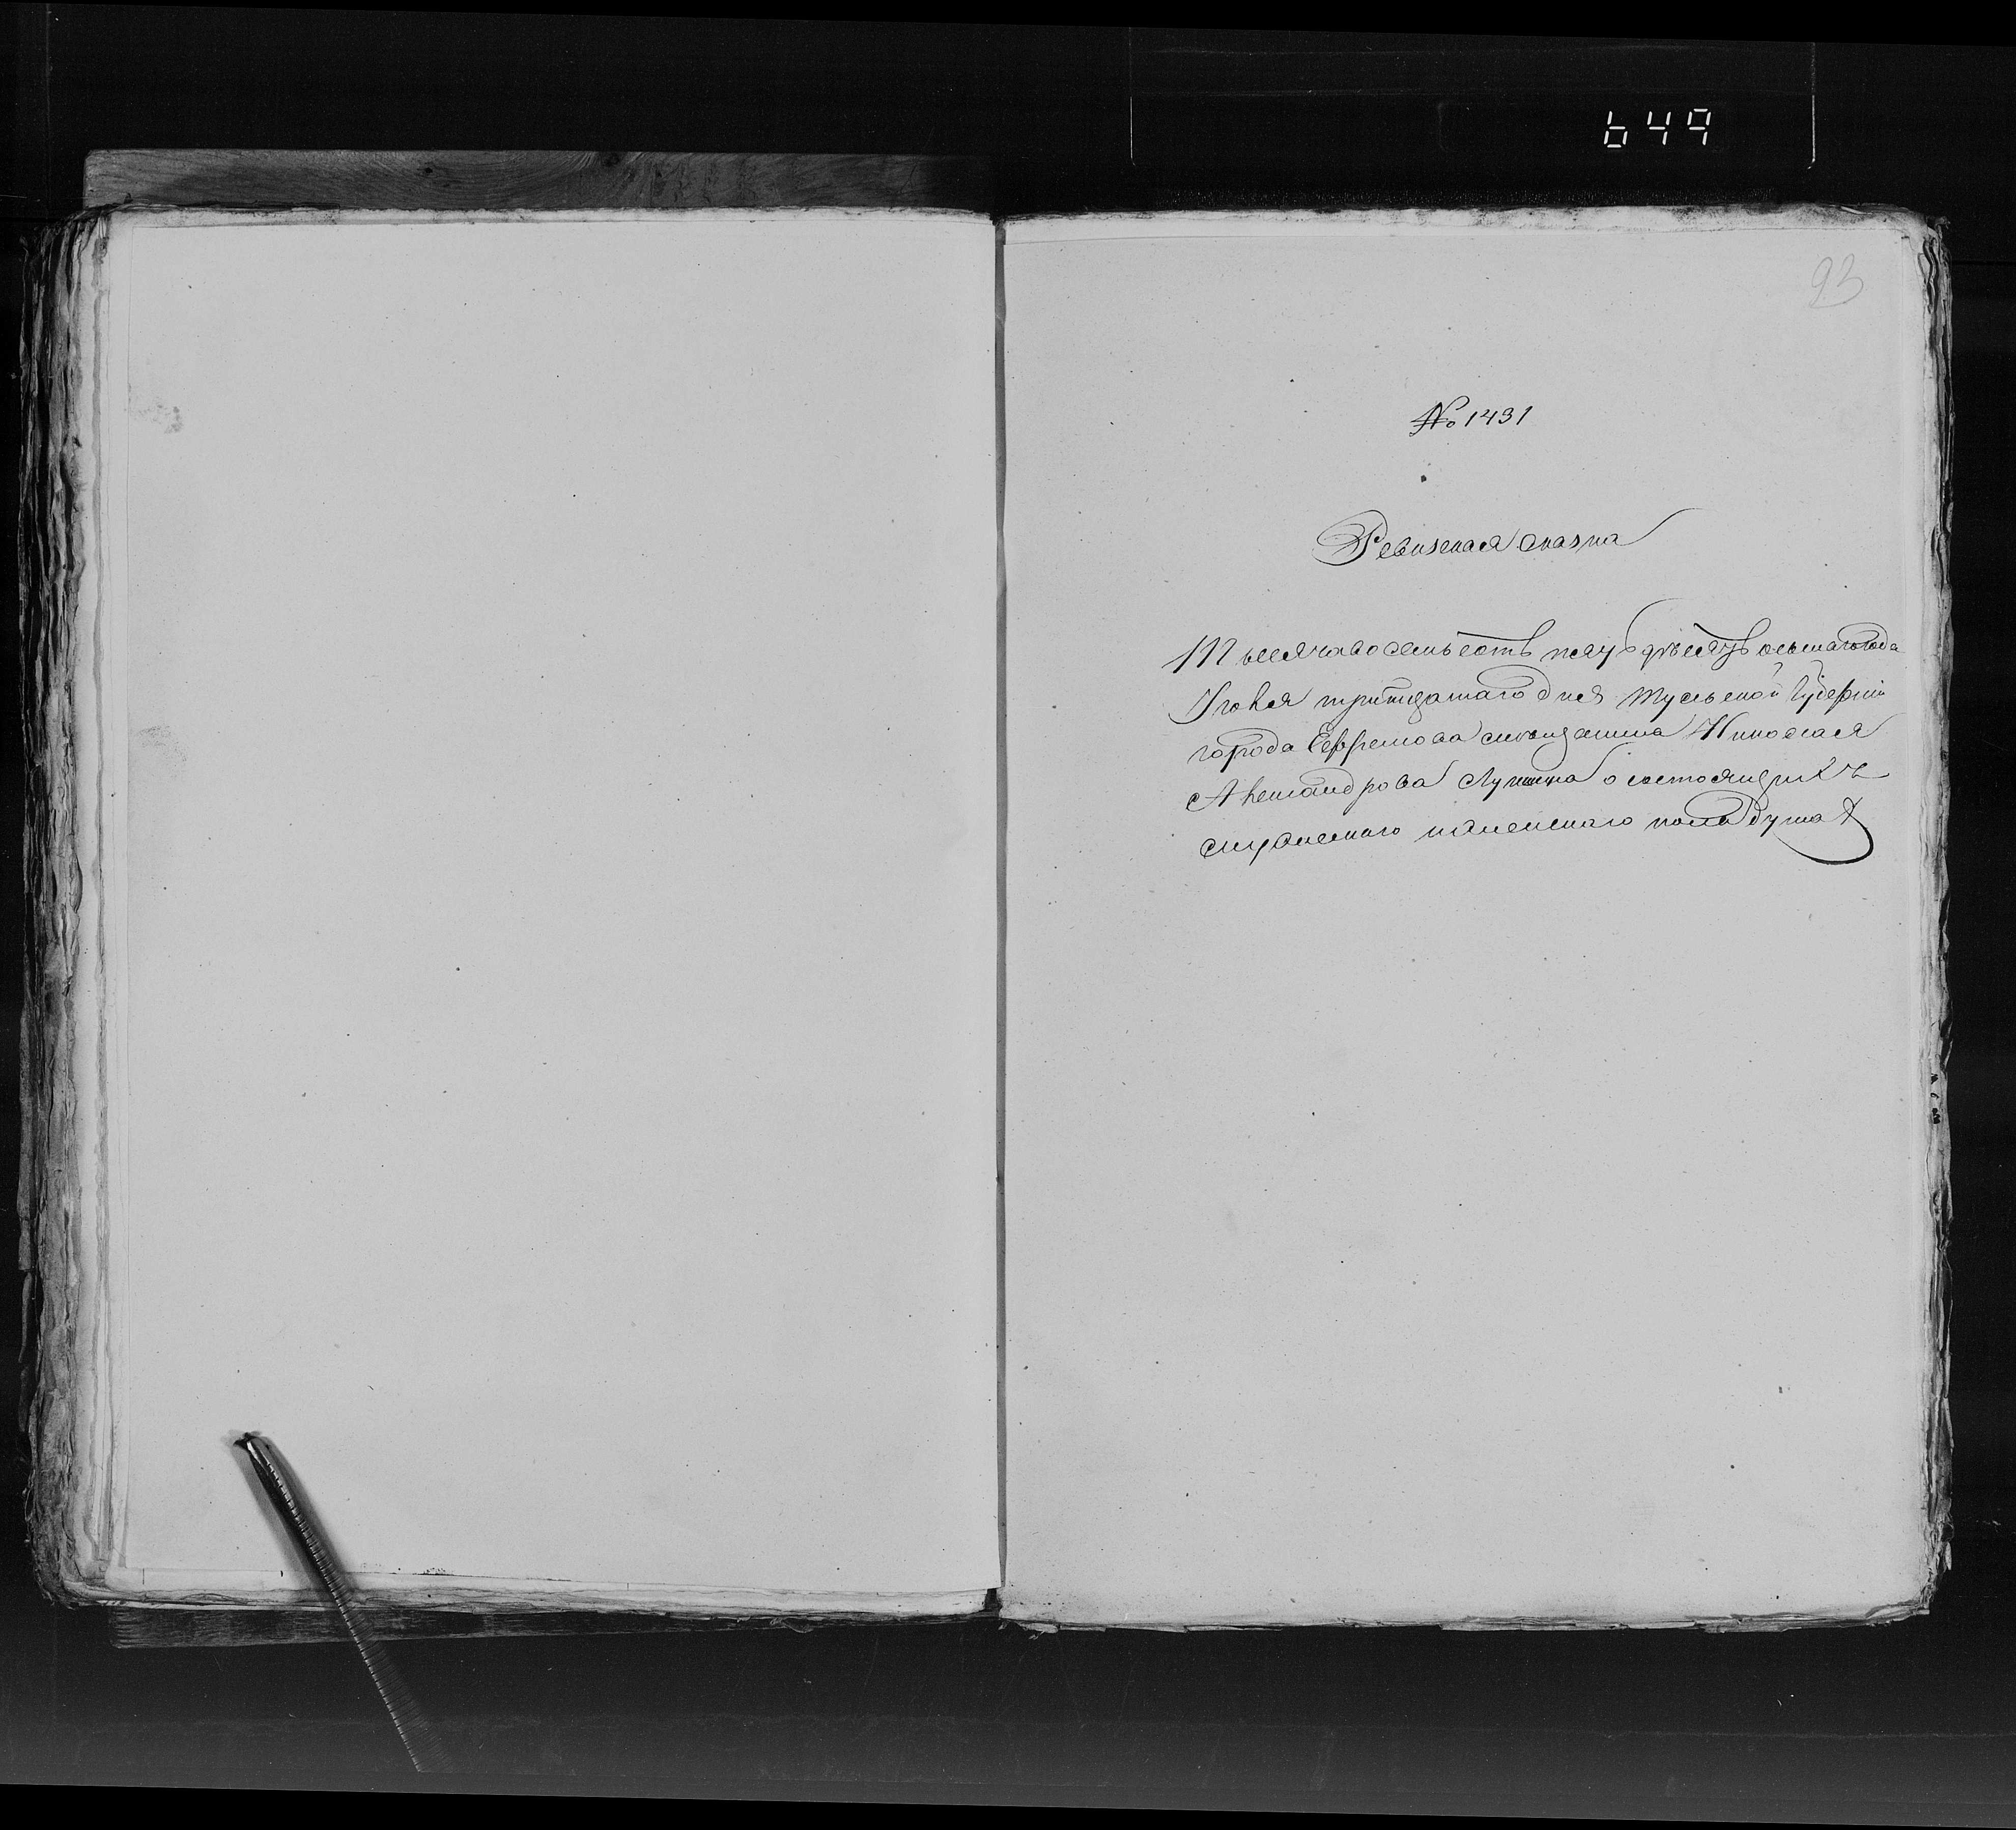 649
93
№ 1431
Ревизская сказка
Тысяча восемьсотъ пятьдесятъ осьмаго года
Июня тритцатаго дня Тульской Губерніи
города Ефремова мещанина Николая
Александрова о состоящихъ
мужескаго и женскаго пола душах